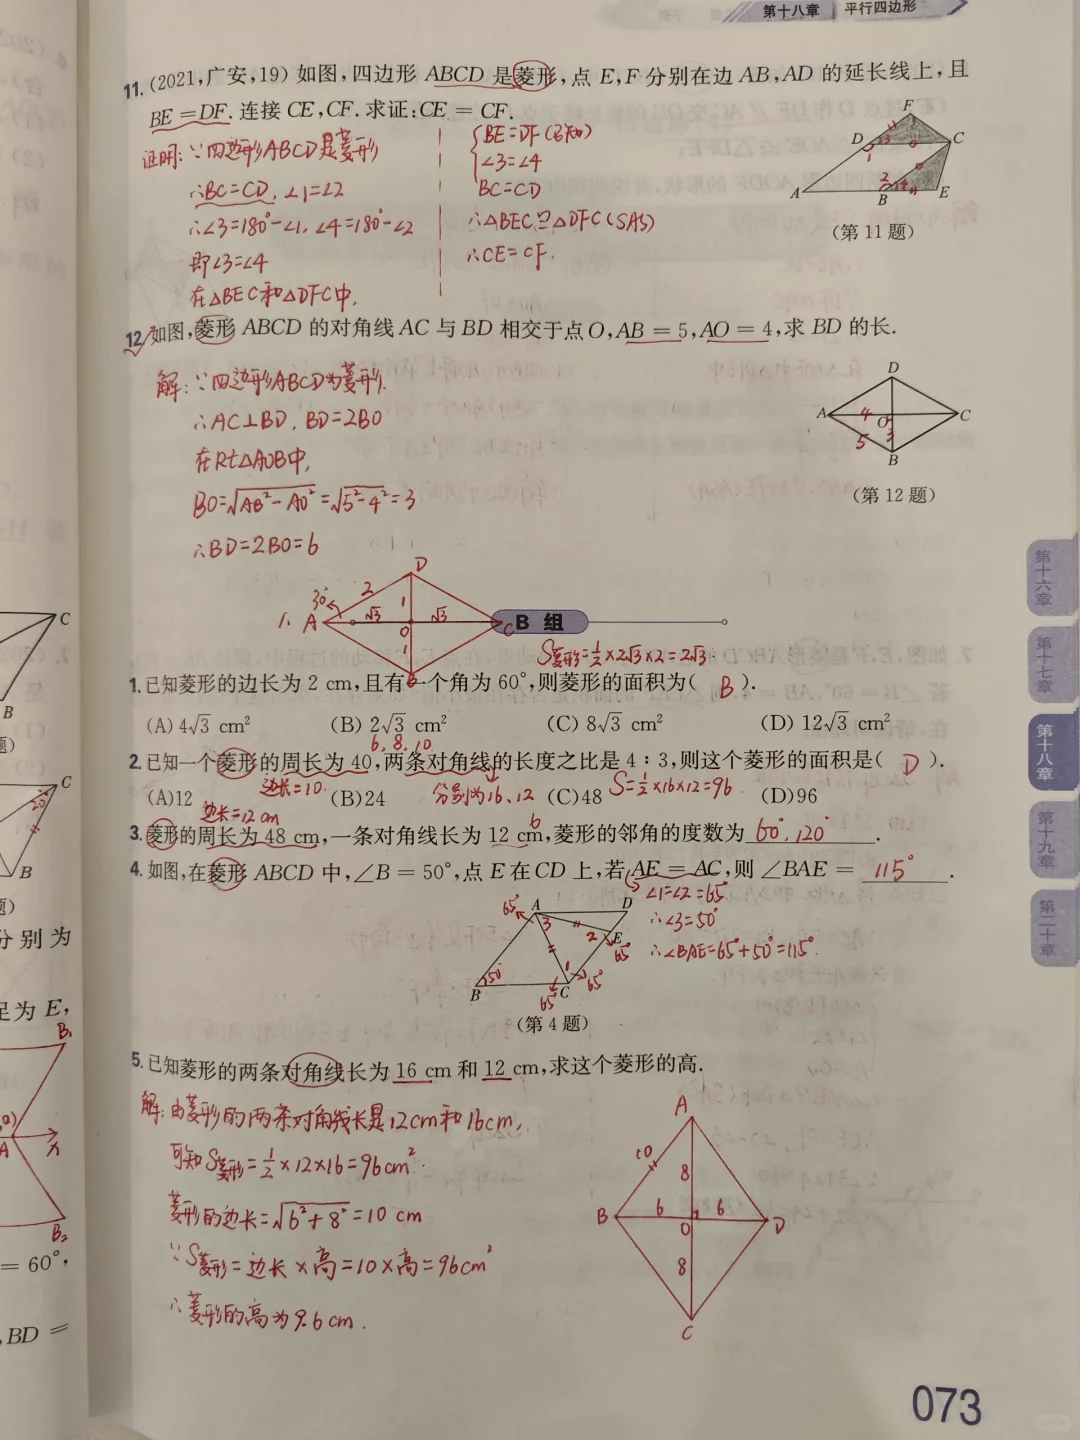 第十八章 平行四边形
11. (2021,广安,19) 如图,四边形 ABCD 是菱形,点 E,F 分别在边 AB,AD 的延长线上,且
BE = DF. 连接 CE,CF. 求证:CE = CF.
证明:∵四边形ABCD是菱形
∴BC=CD, ∠1=∠2
∴∠3=180°-∠1, ∠4=180°-∠2
即∠3=∠4
在△BEC和△DFC中,
BE=DF(已知)
∠3=∠4
BC=CD
∴△BEC≌△DFC(SAS)
∴CE=CF.
F
D
C
3
1
2
4
A
B
E
(第 11 题)
12. 如图,菱形 ABCD 的对角线 AC 与 BD 相交于点 O,AB = 5,AO = 4,求 BD 的长.
解:∵四边形ABCD为菱形.
∴AC⊥BD, BD=2BO
在Rt△AOB中,
BO=√AB²-AO²=√5²-4²=3
∴BD=2BO=6
D
A
4
O
C
5
3
B
(第 12 题)
D
30°
2
1
1.
A
√3
√3
O
C
1
B
B 组
S菱形=½×2√3×2=2√3
1. 已知菱形的边长为 2 cm,且有一个角为 60°,则菱形的面积为( B ).
(A) 4√3 cm²
(B) 2√3 cm²
(C) 8√3 cm²
(D) 12√3 cm²
6, 8, 10
2. 已知一个菱形的周长为 40,两条对角线的长度之比是 4∶3,则这个菱形的面积是( D ).
边长=10.
分别为16、12
S=½×16×12=96
(A)12
(B)24
(C)48
(D)96
边长=12cm
6
3. 菱形的周长为 48 cm,一条对角线长为 12 cm,菱形的邻角的度数为 60°, 120° .
4. 如图,在菱形 ABCD 中,∠B = 50°,点 E 在 CD 上,若 AE = AC,则 ∠BAE = 115° .
∠1=∠2=65°
∴∠3=50°
∴∠BAE=65°+50°=115°
65°
A
D
3
2
E
65°
50°
1
B
C
65°
65°
(第 4 题)
5. 已知菱形的两条对角线长为 16 cm 和 12 cm,求这个菱形的高.
解:由菱形的两条对角线长是12cm和16cm,
可知S菱形=½×12×16=96cm².
菱形的边长=√6²+8²=10 cm
∵S菱形=边长×高=10×高=96cm²
∴菱形的高为9.6cm.
A
10
8
B
6
6
D
O
8
C
第十六章
第十七章
第十八章
第十九章
第二十章
C
B
C
20°
B
分别为
足为 E,
B₁
A
x
B₂
= 60°,
,BD =
073